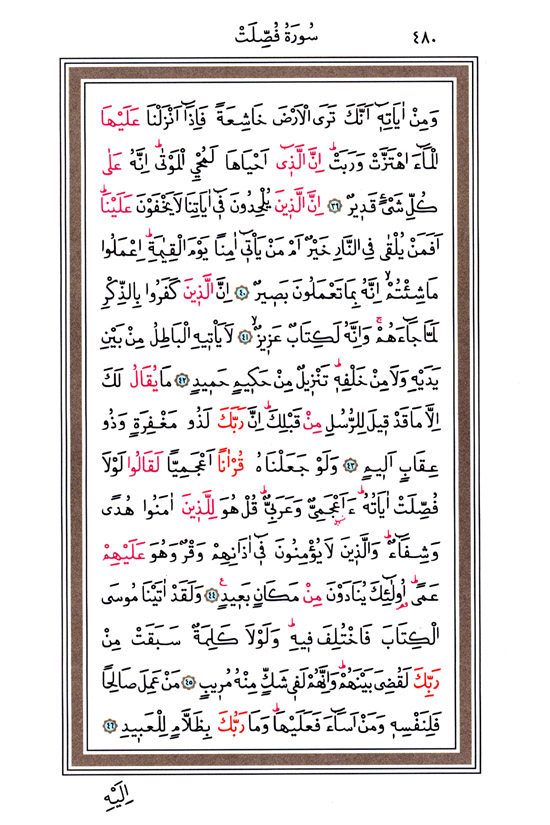 سُورَةُ فُصِّلَتْ ٤٨٠
وَمِنْ اٰيَاتِه۪ٓ اَنَّكَ تَرَى الْاَرْضَ خَاشِعَةً فَاِذَٓا اَنْزَلْنَا عَلَيْهَا
الْمَٓاءَ اهْتَزَّتْ وَرَبَتْۜ اِنَّ الَّذ۪ٓي اَحْيَاهَا لَمُحْيِ الْمَوْتٰىۜ اِنَّهُ عَلٰى
كُلِّ شَيْءٍ قَد۪يرٌ ﴿٣٩﴾ اِنَّ الَّذ۪ينَ يُلْحِدُونَ ف۪ٓي اٰيَاتِنَا لَا يَخْفَوْنَ عَلَيْنَاۜ
اَفَمَنْ يُلْقٰى فِي النَّارِ خَيْرٌ اَمْ مَنْ يَأْت۪ٓي اٰمِنًا يَوْمَ الْقِيٰمَةِۜ اِعْمَلُوا
مَا شِئْتُمْۙ اِنَّهُ بِمَا تَعْمَلُونَ بَص۪يرٌ ﴿٤٠﴾ اِنَّ الَّذ۪ينَ كَفَرُوا بِالذِّكْرِ
لَمَّا جَٓاءَهُمْۚ وَاِنَّهُ لَكِتَابٌ عَز۪يزٌۙ ﴿٤١﴾ لَا يَأْت۪يهِ الْبَاطِلُ مِنْ بَيْنِ
يَدَيْهِ وَلَا مِنْ خَلْفِه۪ۜ تَنْز۪يلٌ مِنْ حَك۪يمٍ حَم۪يدٍ ﴿٤٢﴾ مَا يُقَالُ لَكَ
اِلَّا مَا قَدْ ق۪يلَ لِلرُّسُلِ مِنْ قَبْلِكَۜ اِنَّ رَبَّكَ لَذُو مَغْفِرَةٍ وَذُو
عِقَابٍ اَل۪يمٍ ﴿٤٣﴾ وَلَوْ جَعَلْنَاهُ قُرْاٰنًا اَعْجَمِيًّا لَقَالُوا لَوْلَا
فُصِّلَتْ اٰيَاتُهُۜ ءَاَعْجَمِيٌّ وَعَرَبِيٌّۜ قُلْ هُوَ لِلَّذ۪ينَ اٰمَنُوا هُدًى
وَشِفَٓاءٌۜ وَالَّذ۪ينَ لَا يُؤْمِنُونَ ف۪ٓي اٰذَانِهِمْ وَقْرٌ وَهُوَ عَلَيْهِمْ
عَمًىۜ اُو۬لٰٓئِكَ يُنَادَوْنَ مِنْ مَكَانٍ بَع۪يدٍ۟ ﴿٤٤﴾ وَلَقَدْ اٰتَيْنَا مُوسَى
الْكِتَابَ فَاخْتُلِفَ ف۪يهِۜ وَلَوْلَا كَلِمَةٌ سَبَقَتْ مِنْ
رَبِّكَ لَقُضِيَ بَيْنَهُمْۜ وَاِنَّهُمْ لَف۪ي شَكٍّ مِنْهُ مُر۪يبٍ ﴿٤٥﴾ مَنْ عَمِلَ صَالِحًا
فَلِنَفْسِه۪ وَمَنْ اَسَٓاءَ فَعَلَيْهَاۜ وَمَا رَبُّكَ بِظَلَّامٍ لِلْعَب۪يدِ ﴿٤٦﴾
اِلَيْهِ